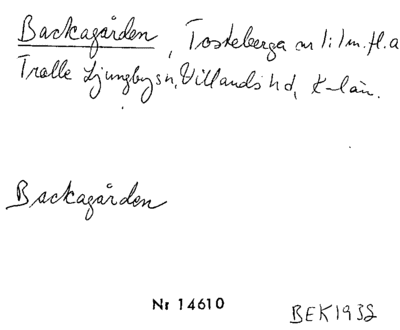 Backagården, Tosteberga nr 1:1 m.fl.a
Tralle Ljungby sn, Villands hd, K-län.
Backagården
Nr 14610
BEK1932